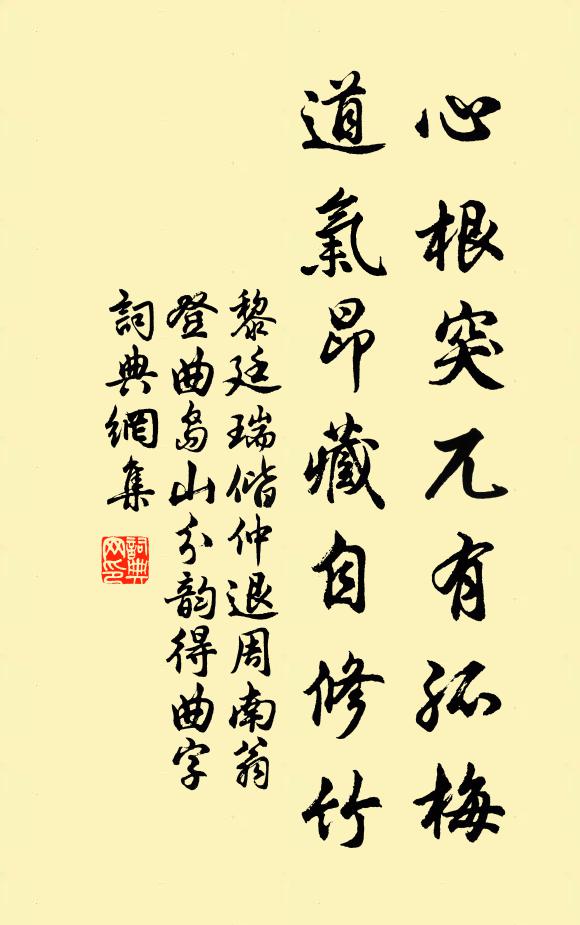 心根突兀有孤梅
道氣昂藏自修竹
黎廷瑞偕仲退周南翁
登曲島山分韵得曲字
詞典網集
詞典網印